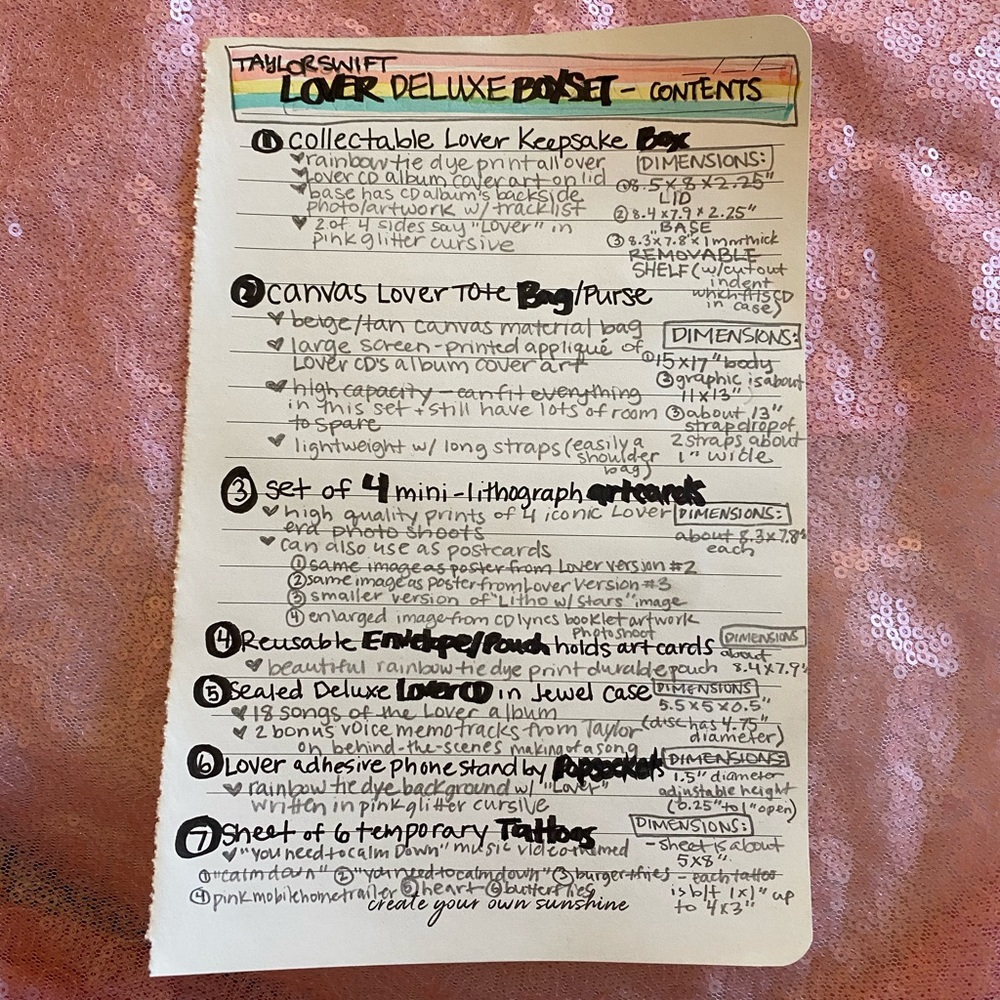 TAYLOR SWIFT
LOVER DELUXE BOXSET - CONTENTS
① collectable Lover Keepsake Box
♥ rainbow tie dye print all over
♥ Lover CD album cover art on lid
♥ base has CD album's backside
photo/artwork w/ tracklist
♥ 2 of 4 sides say "Lover" in
pink glitter cursive
DIMENSIONS:
① 8.5 x 8 x 2.25"
LID
② 8.4 x 7.9 x 2.25"
BASE
③ 8.3 x 7.8" x 1mm thick
REMOVABLE
SHELF (w/ cutout
indent
which fits CD
in case)
② canvas Lover Tote Bag/Purse
♥ beige/tan canvas material bag
♥ large screen-printed appliqué of
Lover CD's album cover art
♥ high capacity - can fit everything
in this set + still have lots of room
to spare
♥ lightweight w/ long straps (easily a
shoulder
bag)
DIMENSIONS:
① 15 x 17" body
② graphic is about
11 x 13"
③ about 13"
strap drop of
2 straps about
1" wide
③ set of 4 mini-lithograph artcards
♥ high quality prints of 4 iconic Lover
era photo shoots
♥ can also use as postcards
① same image as poster from Lover version #2
② same image as poster from Lover Version #3
③ smaller version of "Litho w/ Stars" image
④ enlarged image from CD lyrics booklet artwork
photoshoot
DIMENSIONS:
about 8.3 x 7.8"
each
④ Reusable Envelope/Pouch holds art cards
♥ beautiful rainbow tie dye print durable pouch
DIMENSIONS
about
8.4 x 7.9"
⑤ Sealed Deluxe Lover CD in Jewel Case
♥ 18 songs of the Lover album
♥ 2 bonus voice memo tracks from Taylor
on behind-the-scenes making of a song
DIMENSIONS
5.5 x 5 x 0.5"
(disc has 4.75"
diameter)
⑥ Lover adhesive phone stand by Popsockets
♥ rainbow tie dye background w/ "Lover"
written in pink glitter cursive
DIMENSIONS:
1.5" diameter
adjustable height
(0.25" to 1" open)
⑦ Sheet of 6 temporary Tattoos
♥ "You need to calm Down" music video themed
① "calm down" ② "you need to calm down" ③ burger + fries
④ pink mobile home trailer ⑤ heart ⑥ butterflies
DIMENSIONS:
- sheet is about
5 x 8"
- each tattoo
is b/t 1 x 1" up
to 4 x 3"
create your own sunshine